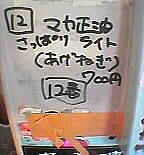 12 マヤ正油
さっぱり ライト
(あげねぎ)
700円
12番